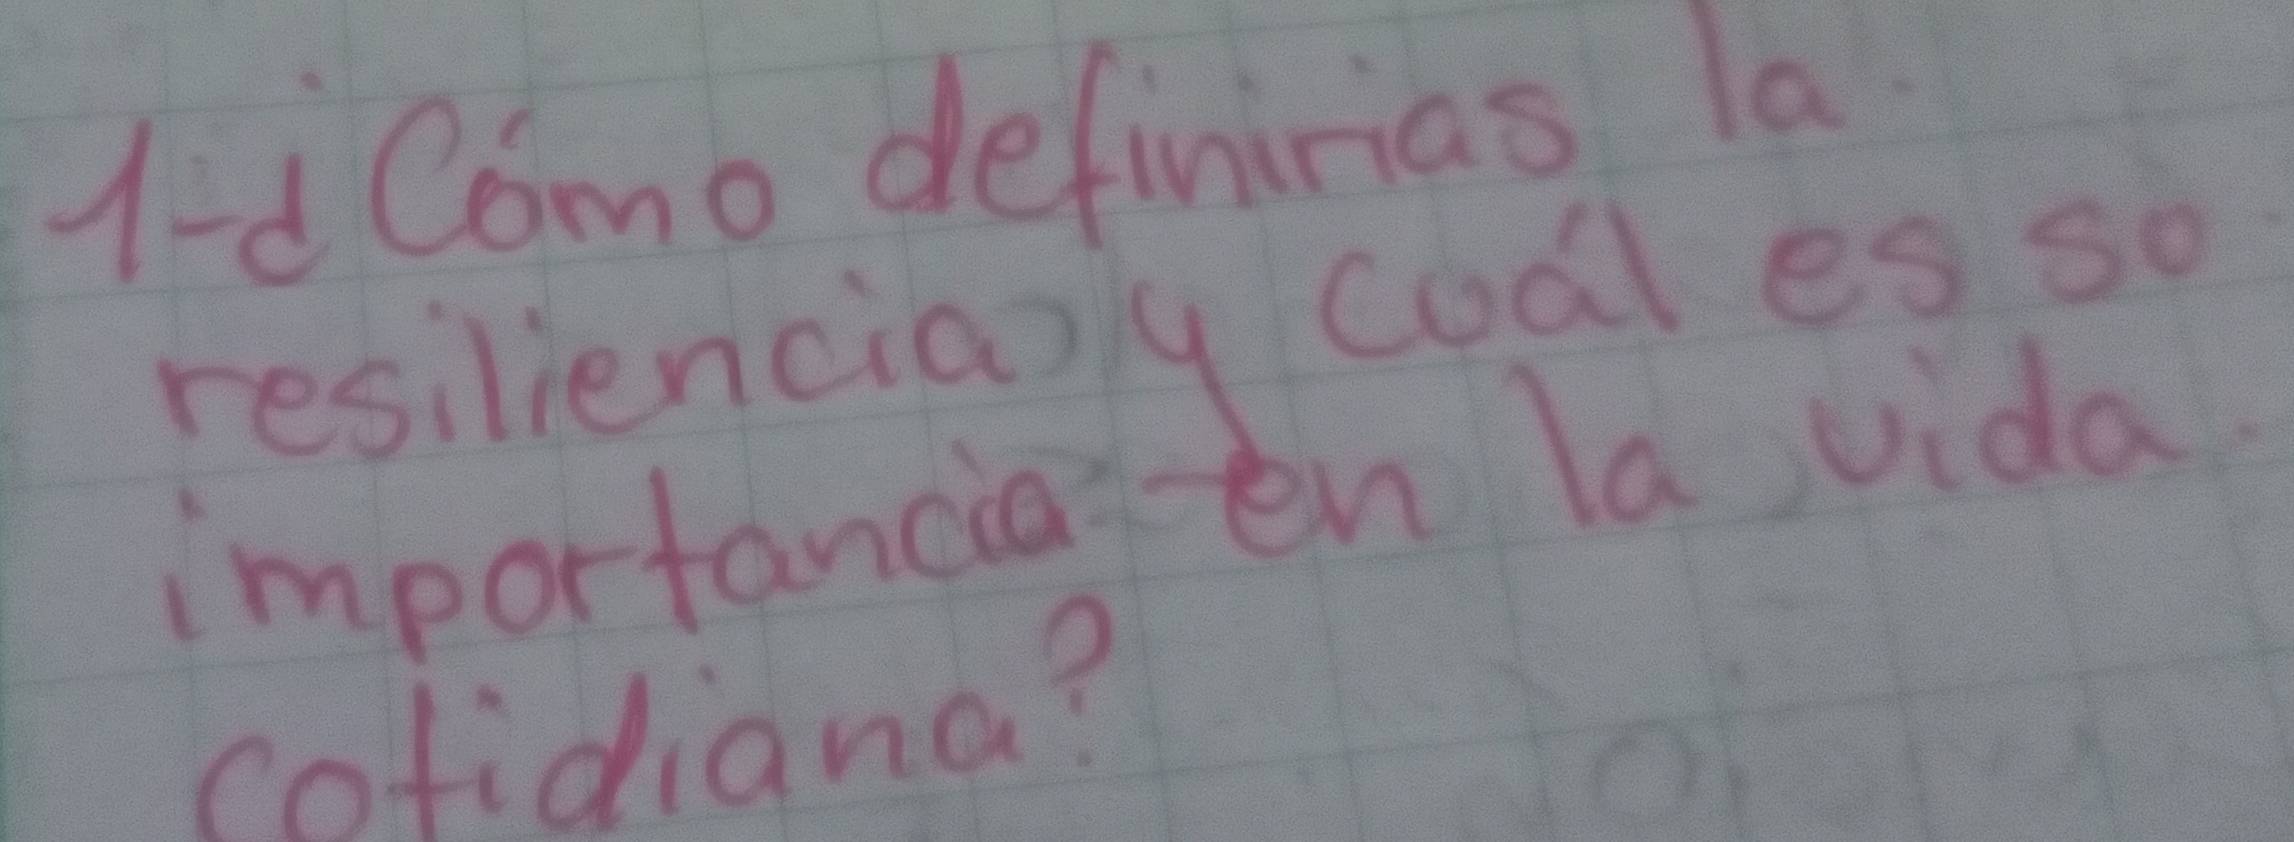 1-¿Cómo definirías la
resiliencia y cuál es su
importancia en la vida
cotidiana?